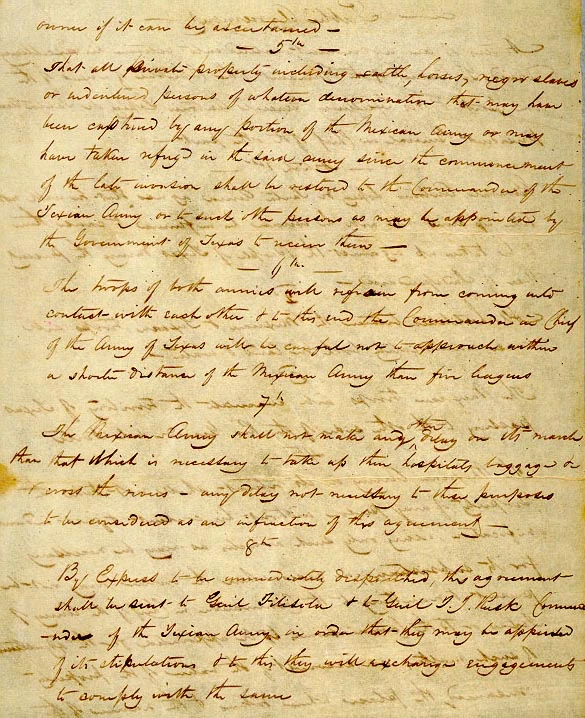 owner if it can be ascertained —
— 5th —
That all private property including cattle, horses, negro slaves
or indentured persons of whatever denomination that may have
been captured by any portion of the Mexican Army or may
have taken refuge in the said army since the commencement
of the late invasion shall be restored to the Commander of the
Texian Army or to such other persons as may be appointed by
the Government of Texas to receive them —
— 6th —
The troops of both armies will refrain from coming into
contact with each other & to this end the Commander in Chief
of the Army of Texas will be careful not to approach within
a shorter distance of the Mexican Army than five leagues
7th
The Mexican Army shall not make any other delay on its march
than that which is necessary to take up their hospitals baggage &
cross the rivers — any delay not necessary to these purposes
to be considered as an infraction of this agreement —
8th
By Express to be immediately despatched, this agreement
shall be sent to Genl Filisola & to Genl T. J. Rusk Comma
-nder of the Texian Army, in order that they may be apprised
of its stipulations & to this they will exchange engagements
to comply with the same